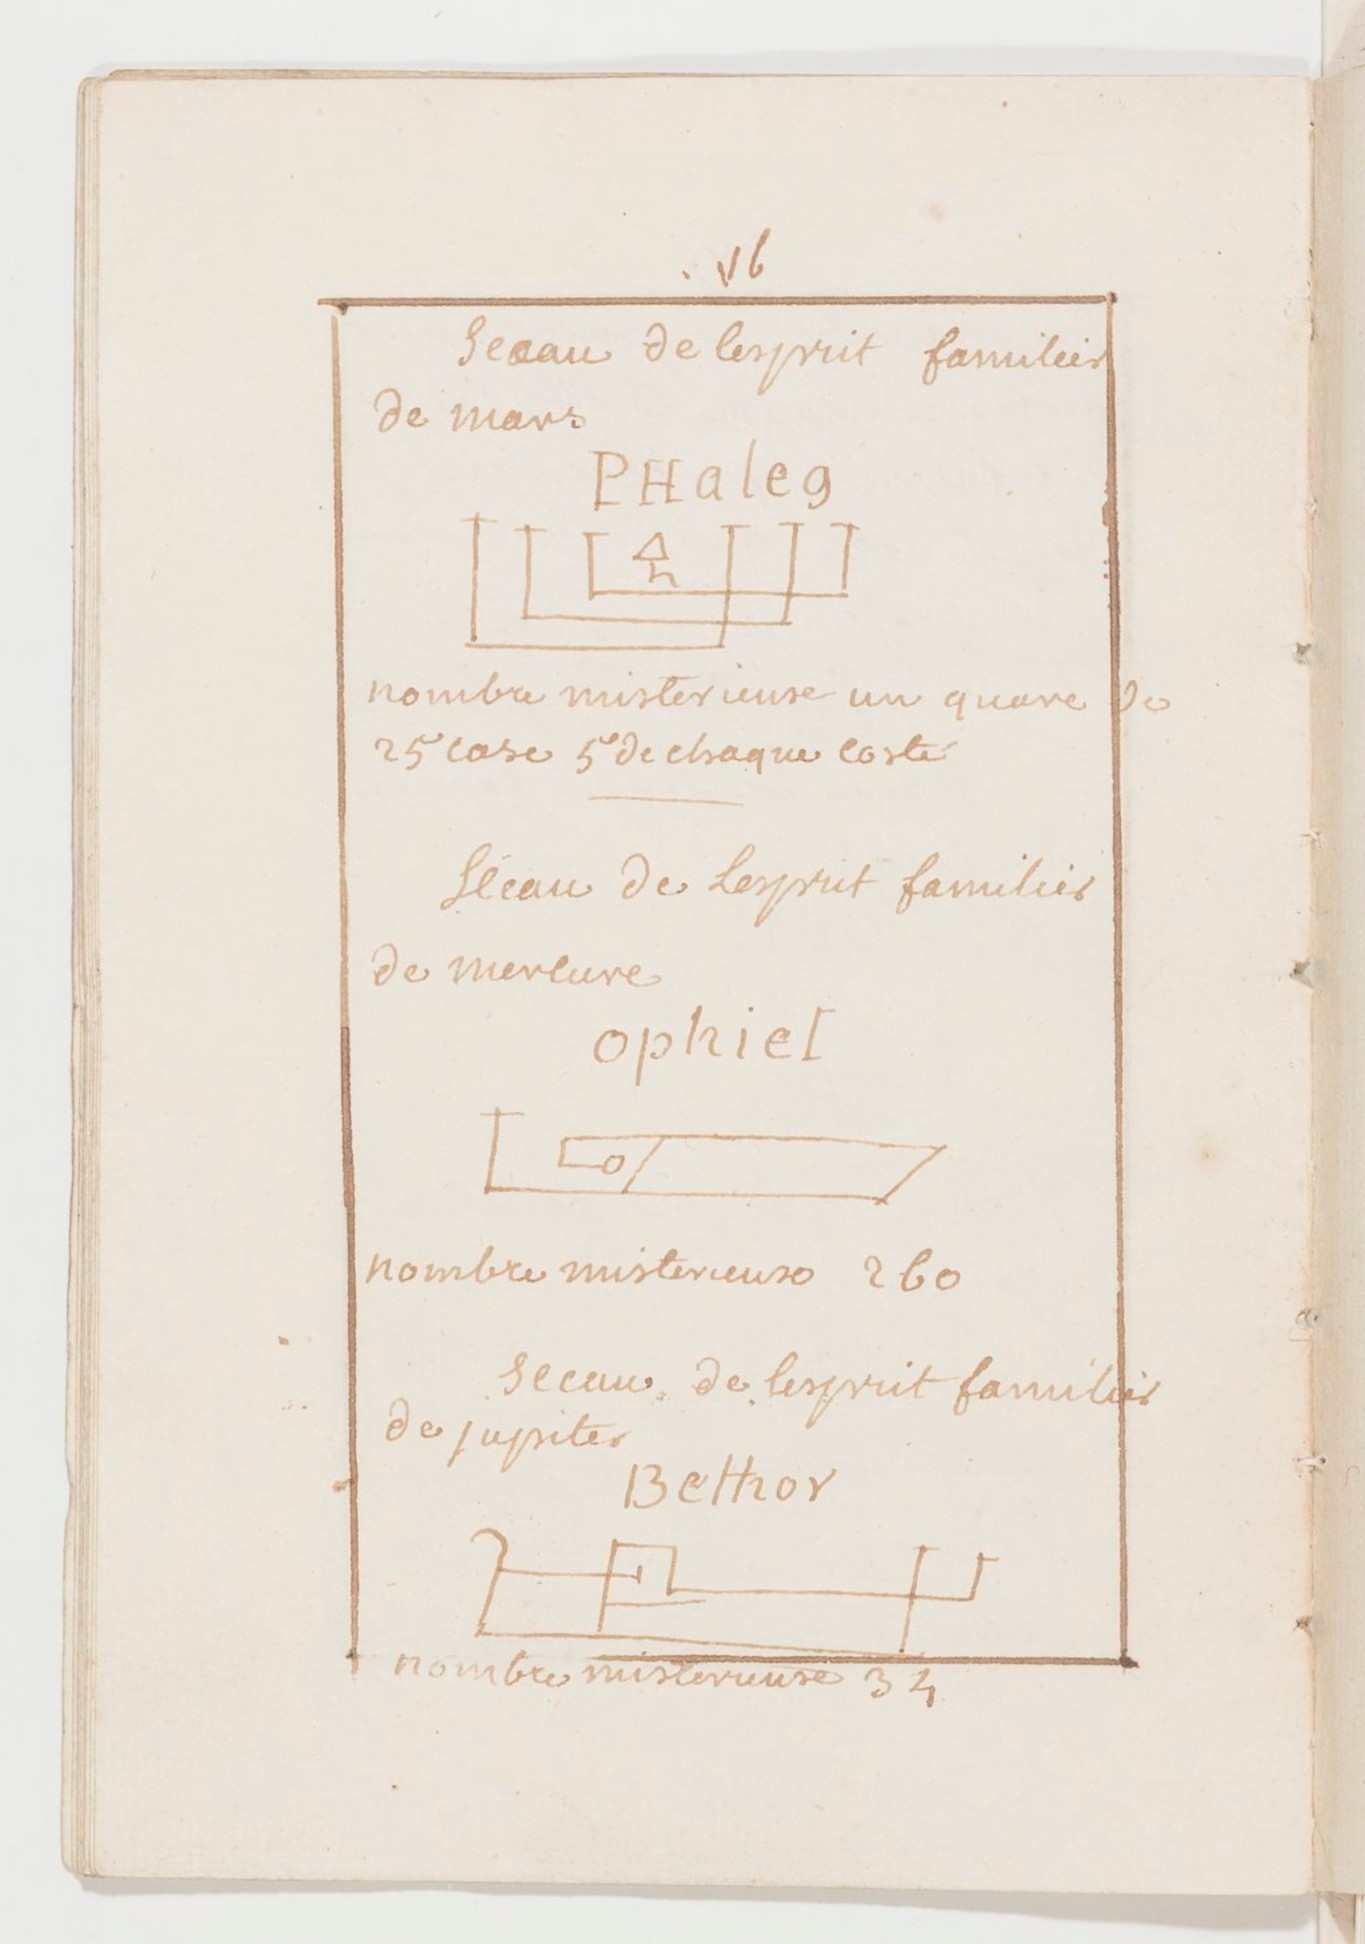 16
Seeau de lesprit familier
de mars
PHaleg
nombre misterieuse un quare de
25 case 5 de chaque coste
Séeau de Lesprit familier
de mercure
ophiel
nombre misterieuse 260
Seeau de lesprit familier
de jupiter
BetHor
nombre misterieuse 34